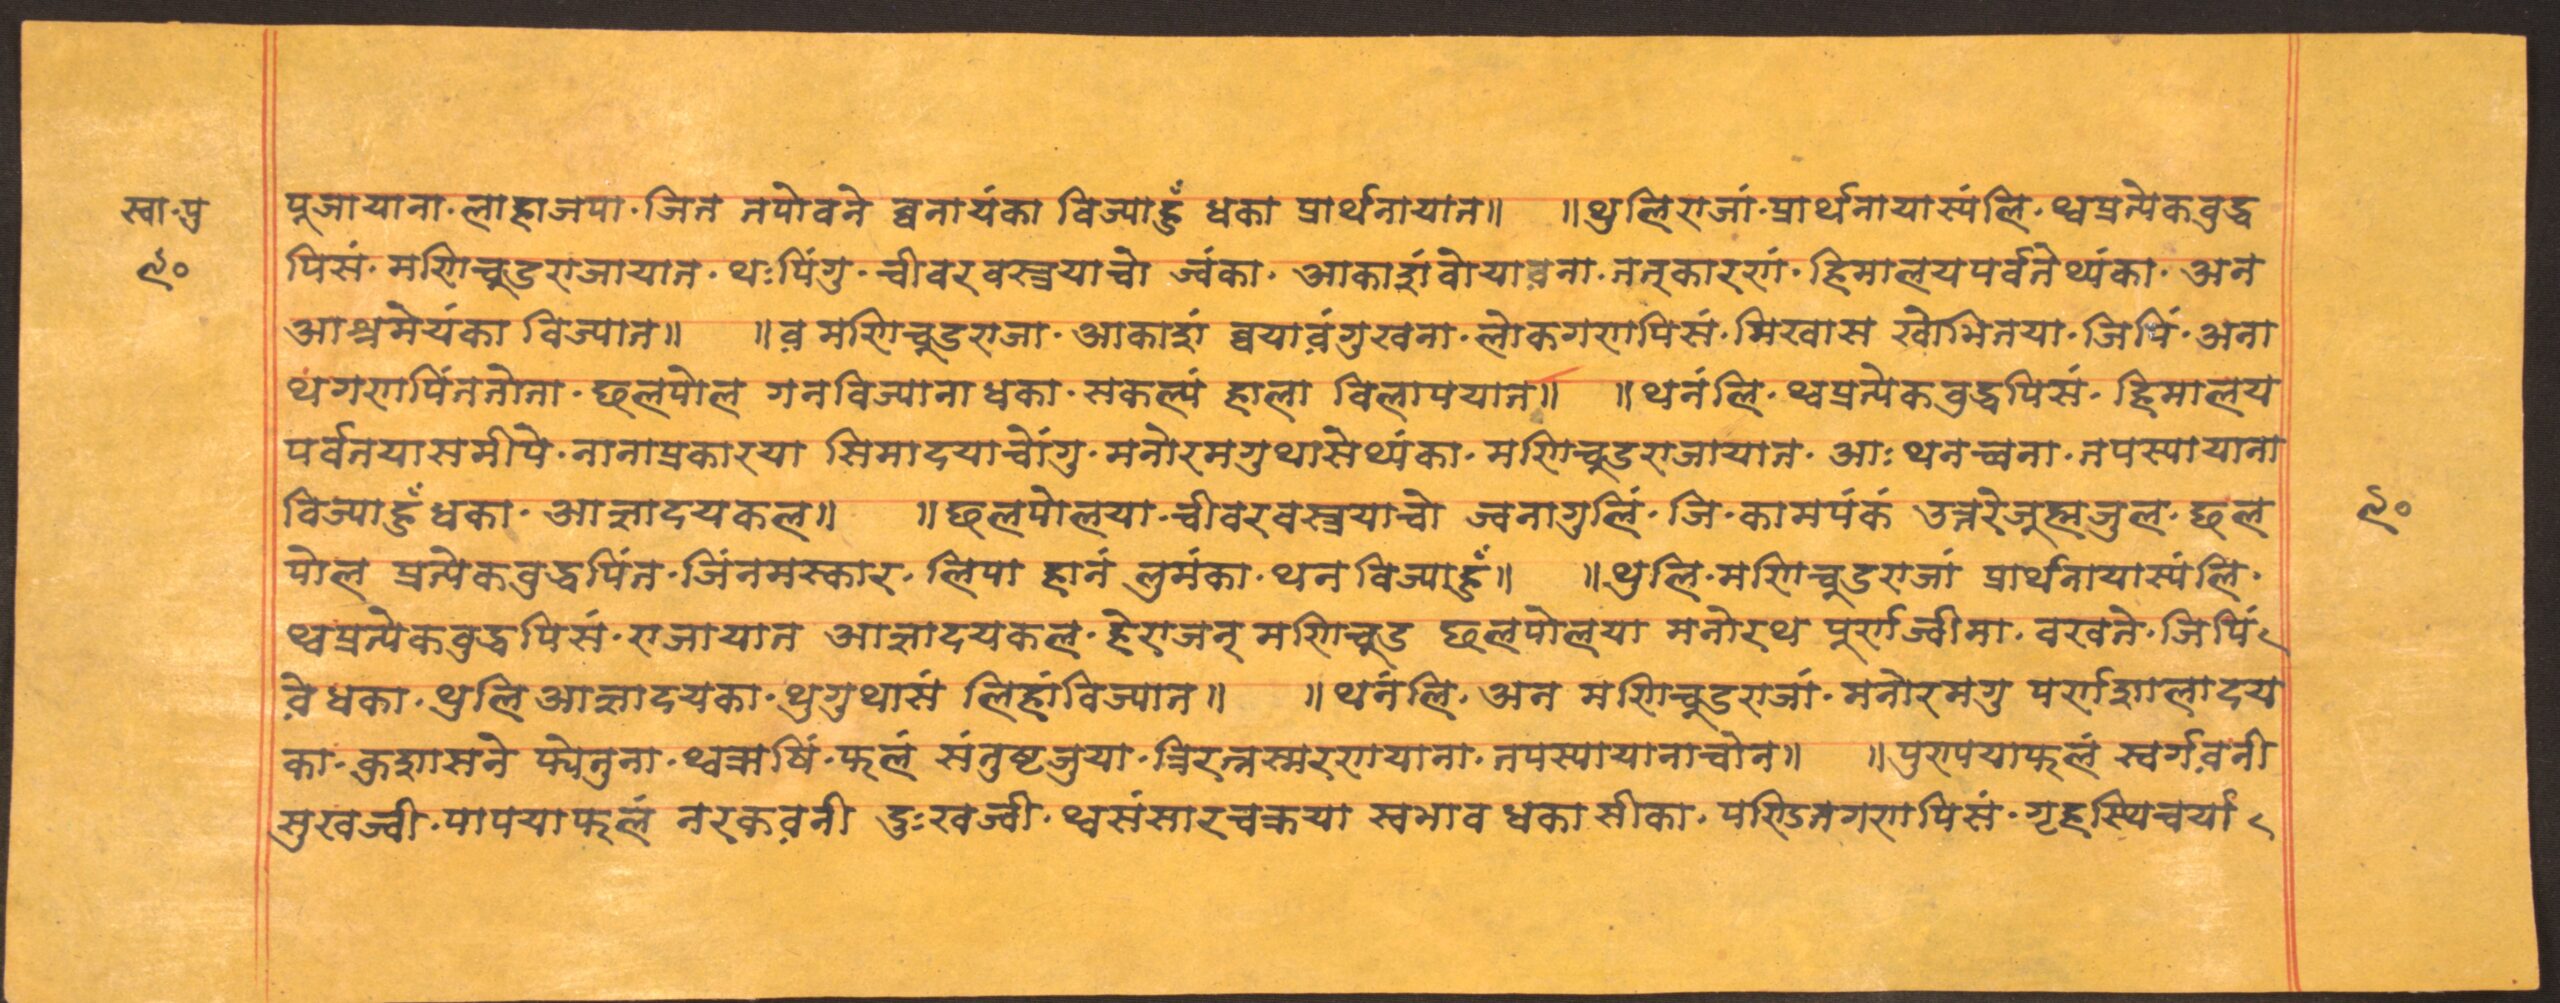 स्वा॰पु
९०
पूजायाना॰लाहाजपा॰जित तपोवने ब्वनायंका विज्याहुँ धका प्रार्थनायात॥ ॥थुलिराजां॰प्रार्थनायास्यंलि॰थ्वप्रत्येकबुद्ध
पिसं॰मणिचूडराजायात॰थःपिंगु॰चीवरवस्त्रयाचो ज्वंका॰आकाशंबोया व़ना॰तत्कारणं॰हिमालयपर्वतेथ्यंका॰अन
आश्रमेयंका विज्यात॥ ॥व़ मणिचूडराजा॰आकाशं ब्वयाव़ंगुखना॰लोकगणपिसं॰मिखास खोभितया॰जिपिं॰अना
थगणपिंततोता॰छलपोल गनविज्याना धका॰सकल्यं हाला विलापयात॥ ॥थनंलि॰थ्वप्रत्येकबुद्धपिसं॰हिमालय
पर्वतयासमीपे॰नानाप्रकारया सिमादयाचोंगु॰मनोरमगुथासेथ्यंका॰मणिचूडराजायात॰आः थनच्वना॰तपस्यायाना
विज्याहुँधका॰आज्ञादयकल॥ ॥छलपोलया॰चीवरवस्त्रयाचो ज्वनागुलिं॰जि॰कामपंकं उत्तरेजुह्मजुल॰छल
पोल प्रत्येकबुद्धपिंत॰जिंनमस्कार॰लिपा हानं लुमंका॰थन विज्याहुँ॥ ॥थुलि॰मणिचूडराजां प्रार्थनायास्यंलि॰
थ्वप्रत्येकबुद्धपिसं॰राजायात आज्ञादयकल॰हेराजन् मणिचूड छलपोलया मनोरथ पूर्णज्वीमा॰वखते॰जिपिं
व़े धका॰थुलि आज्ञादयका॰थुगुथासं लिहांविज्यात॥ ॥थनंलि॰अन मणिचूडराजां॰मनोरमगु पर्णशालादय
का॰कुशासने फ्येतुना॰ध्वन्मषिं॰फलं संतुष्टजुया॰त्रिरत्नस्मरणयाना॰तपस्यायानाचोन॥ ॥पुण्यपयाफलं स्वर्गव़नी
सुखज्वी॰पापयाफलं नरकव़नी दुःखज्वी॰थ्वसंसारचक्रया स्वभाव धका सीका॰पण्डितगणपिसं॰गृहस्थिचर्यां
९०